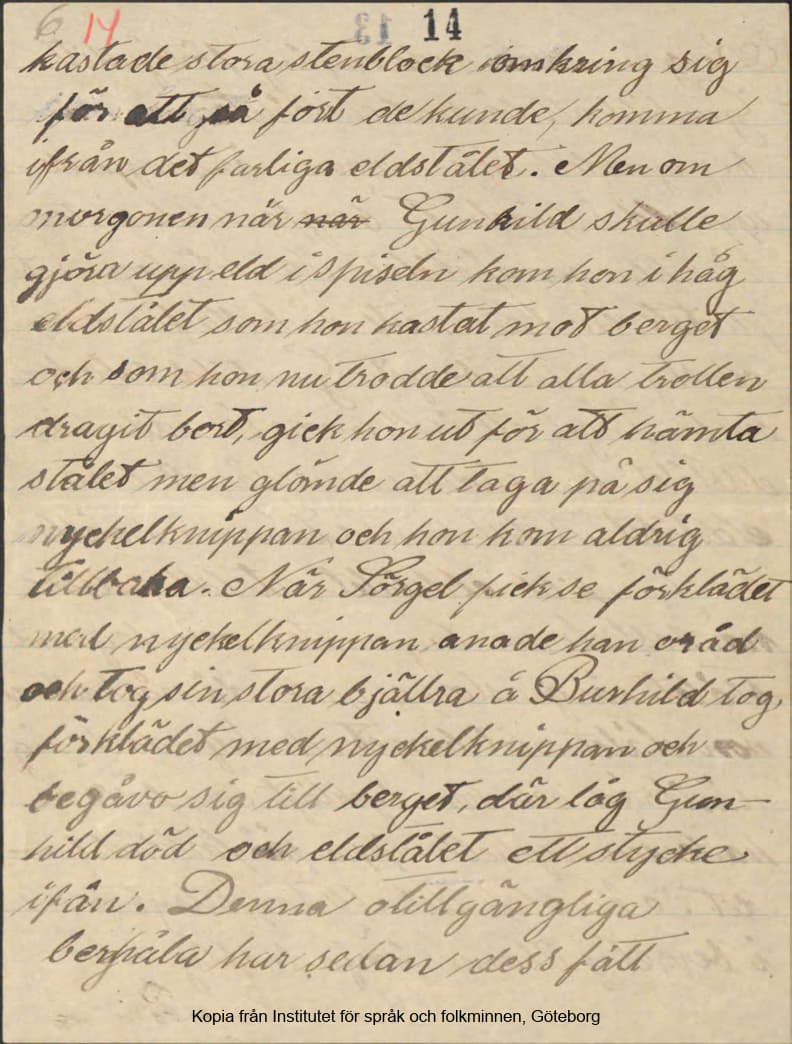 6 14 13 14
kastade stora stenblock omkring sig
för att så fort de kunde, komma
ifrån det farliga eldstålet. Men om
morgonen när när Gunhild skulle
gjöra upp eld i spiseln kom hon i håg
eldstålet som hon kastat mot berget
och som hon nu trodde att alla trollen
dragit bort, gick hon ut för att hämta
stålet men glömde att taga på sig
nyckelknippan och hon kom aldrig
tillbaka. När Sörgel fick se förklädet
med nyckelknippan anade han oråd
och tog sin stora bjällra å Burhild tog
förklädet med nyckelknippan och
begåvo sig till berget, där låg Gun-
hild död och eldstålet ett stycke
ifån. Denna otillgängliga
berjhåla har sedan dess fått
Kopia från Institutet för språk och folkminnen, Göteborg